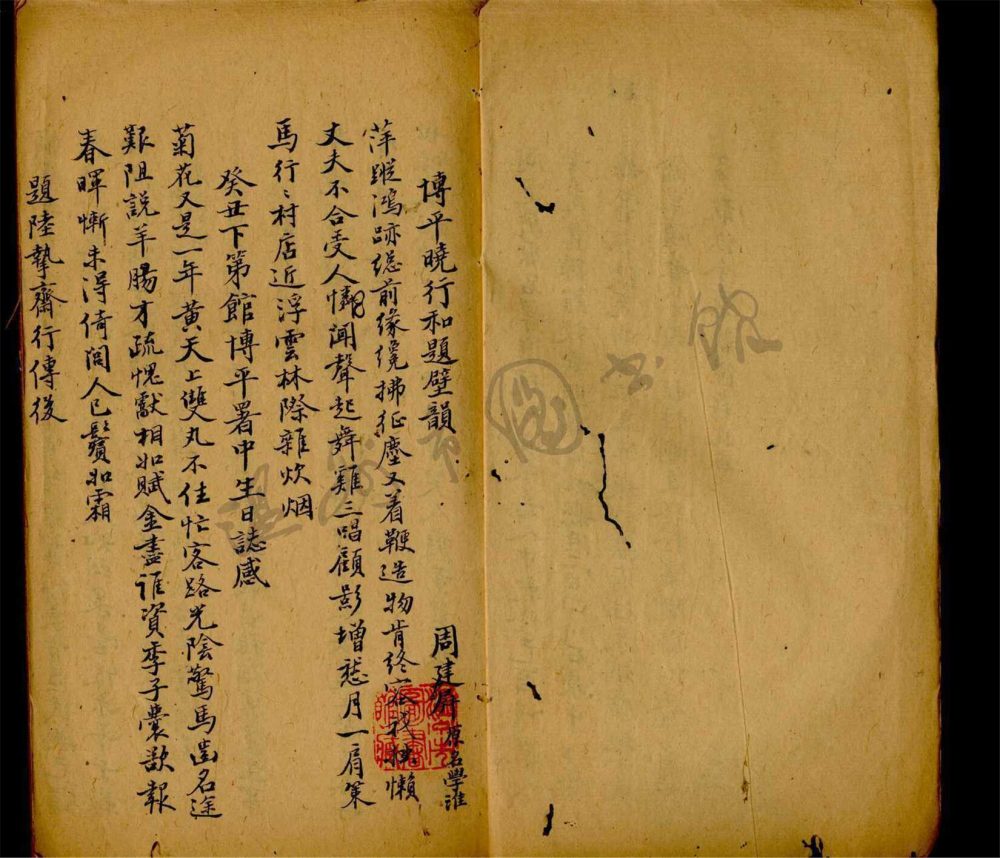 博平曉行和題壁韻
周建屏 原名學淮
萍蹤鴻跡總前緣纔拂征塵又着鞭造物肯終容我懶
丈夫不合受人憐聞聲起舞雞三唱顧影增愁月一肩策
馬行〻村店近浮雲林際雜炊烟
癸丑下第館博平署中生日誌感
菊花又是一年黃天上雙丸不住忙客路光陰驚馬齒名途
艱阻說羊腸才疏愧獻相如賦金盡誰資季子囊欲報
春暉慚未得倚閭人已鬢如霜
題陸摯齋行傳後